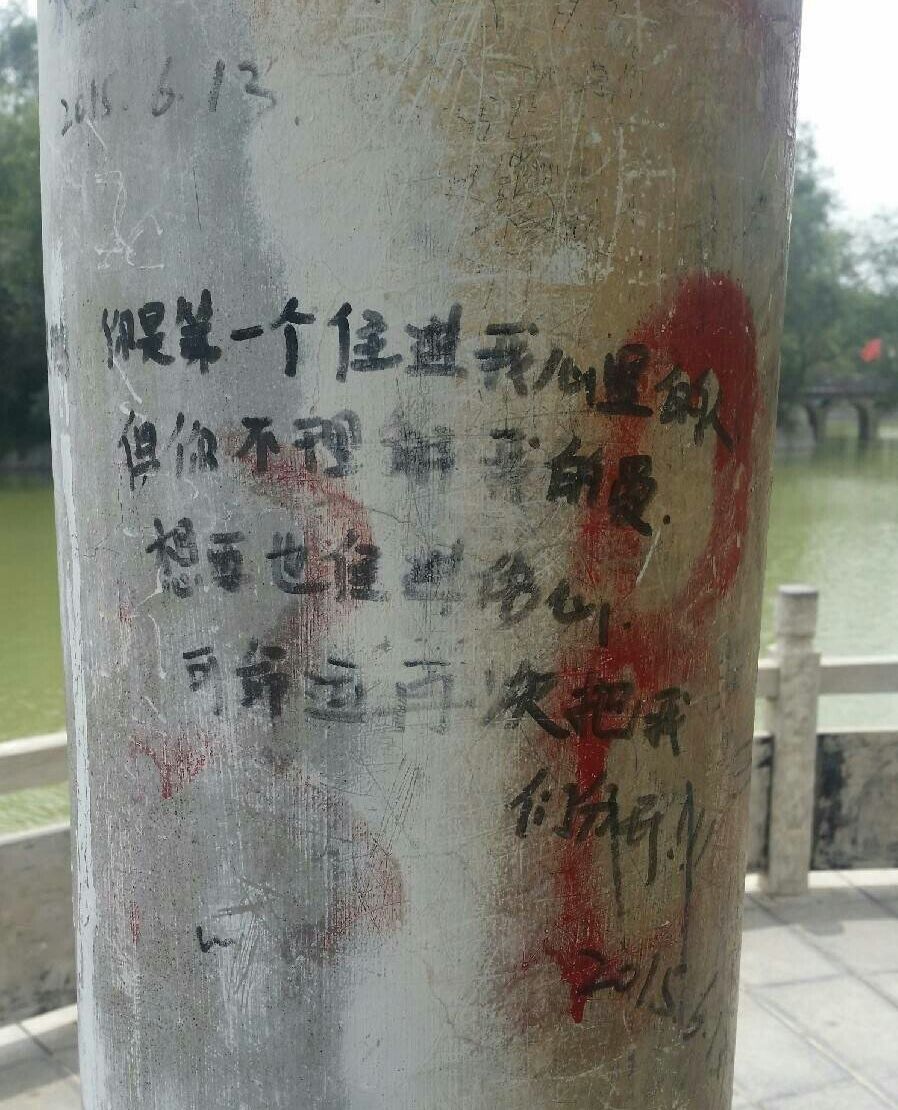 2015.6.13
你是第一个住进我心里的人
但你不理解我的爱.
想要也住进你心,
可命运再次把我
们分开!
2015.6.